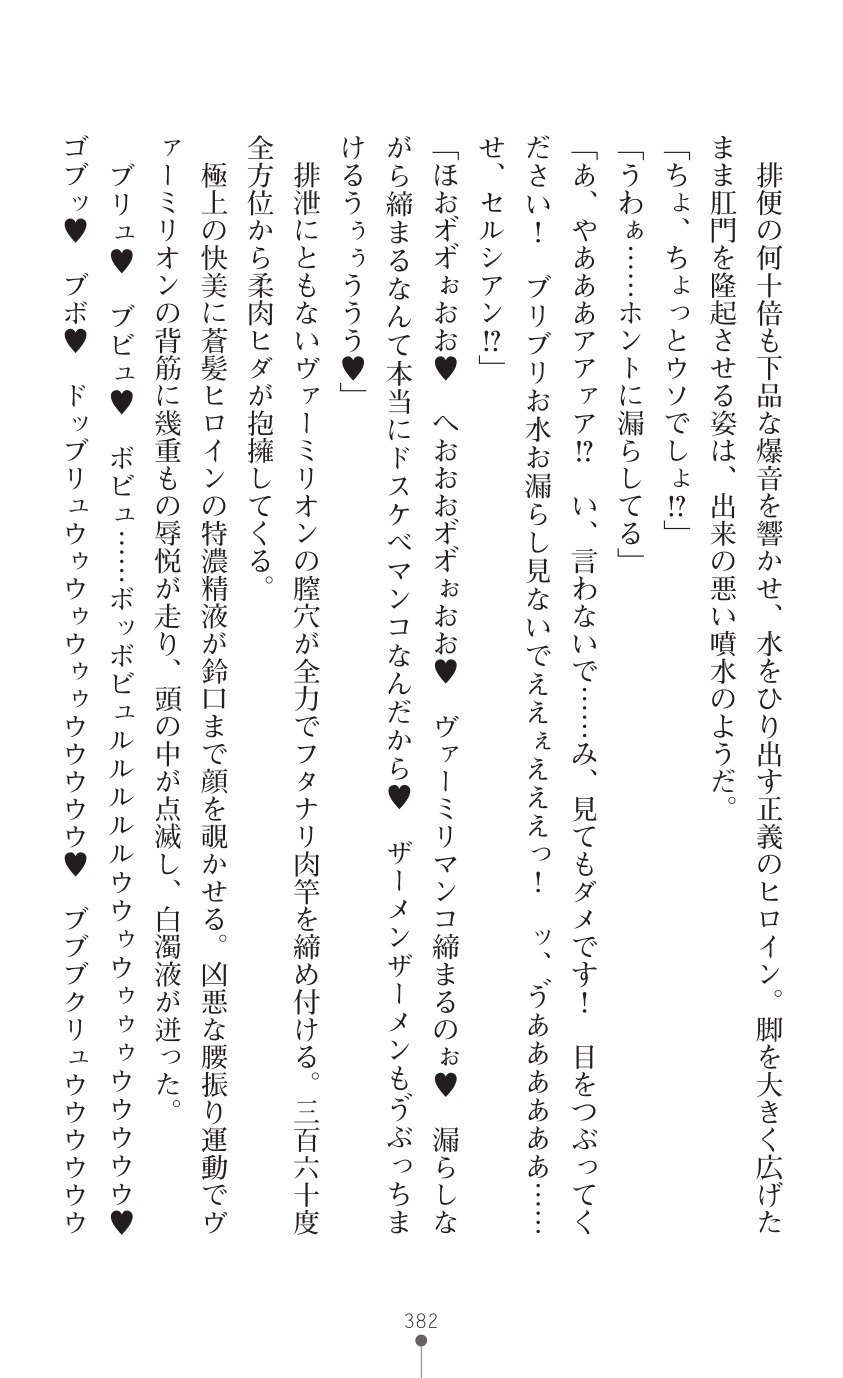 排便の何十倍も下品な爆音を響かせ、水をひり出す正義のヒロイン。脚を大きく広げた
まま肛門を隆起させる姿は、出来の悪い噴水のようだ。
「ちょ、ちょっとウソでしょ!?」
「うわぁ……ホントに漏らしてる」
「あ、やあああアアァア!?　い、言わないで……み、見てもダメです！　目をつぶってく
ださい！　ブリブリお水お漏らし見ないでええぇえええっ！　ッ、ゔああああああ……
せ、セルシアン!?」
「ほおオ゛オ゛ぉおお♥　へおおオ゛オ゛ぉおお♥　ヴァーミリマンコ締まるのぉ♥　漏らしな
がら締まるなんて本当にドスケベマンコなんだから♥　ザーメンザーメンもゔぶっちま
けるうぅぅううう♥」
　排泄にともないヴァーミリオンの膣穴が全力でフタナリ肉竿を締め付ける。三百六十度
全方位から柔肉ヒダが抱擁してくる。
　極上の快美に蒼髪ヒロインの特濃精液が鈴口まで顔を覗かせる。凶悪な腰振り運動でヴ
ァーミリオンの背筋に幾重もの辱悦が走り、頭の中が点滅し、白濁液が迸った。
　ブリュ♥　ブビュ♥　ボビュ……ボッボビュルルルルルウウゥウゥゥゥウウウウウ♥
ゴブッ♥　ブボ♥　ドッブリュウゥウゥウゥゥウウウウウ♥　ブブブクリュウウウウウウ
382